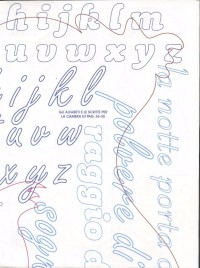 h i j k l m
u v w x y z
i j k l
GLI ALFABETI E LE SCRITTE PER
LA CAMERA DI PAG. 54-55
u v w
x y z
la notte porta
polvere di
raggio d
sogn